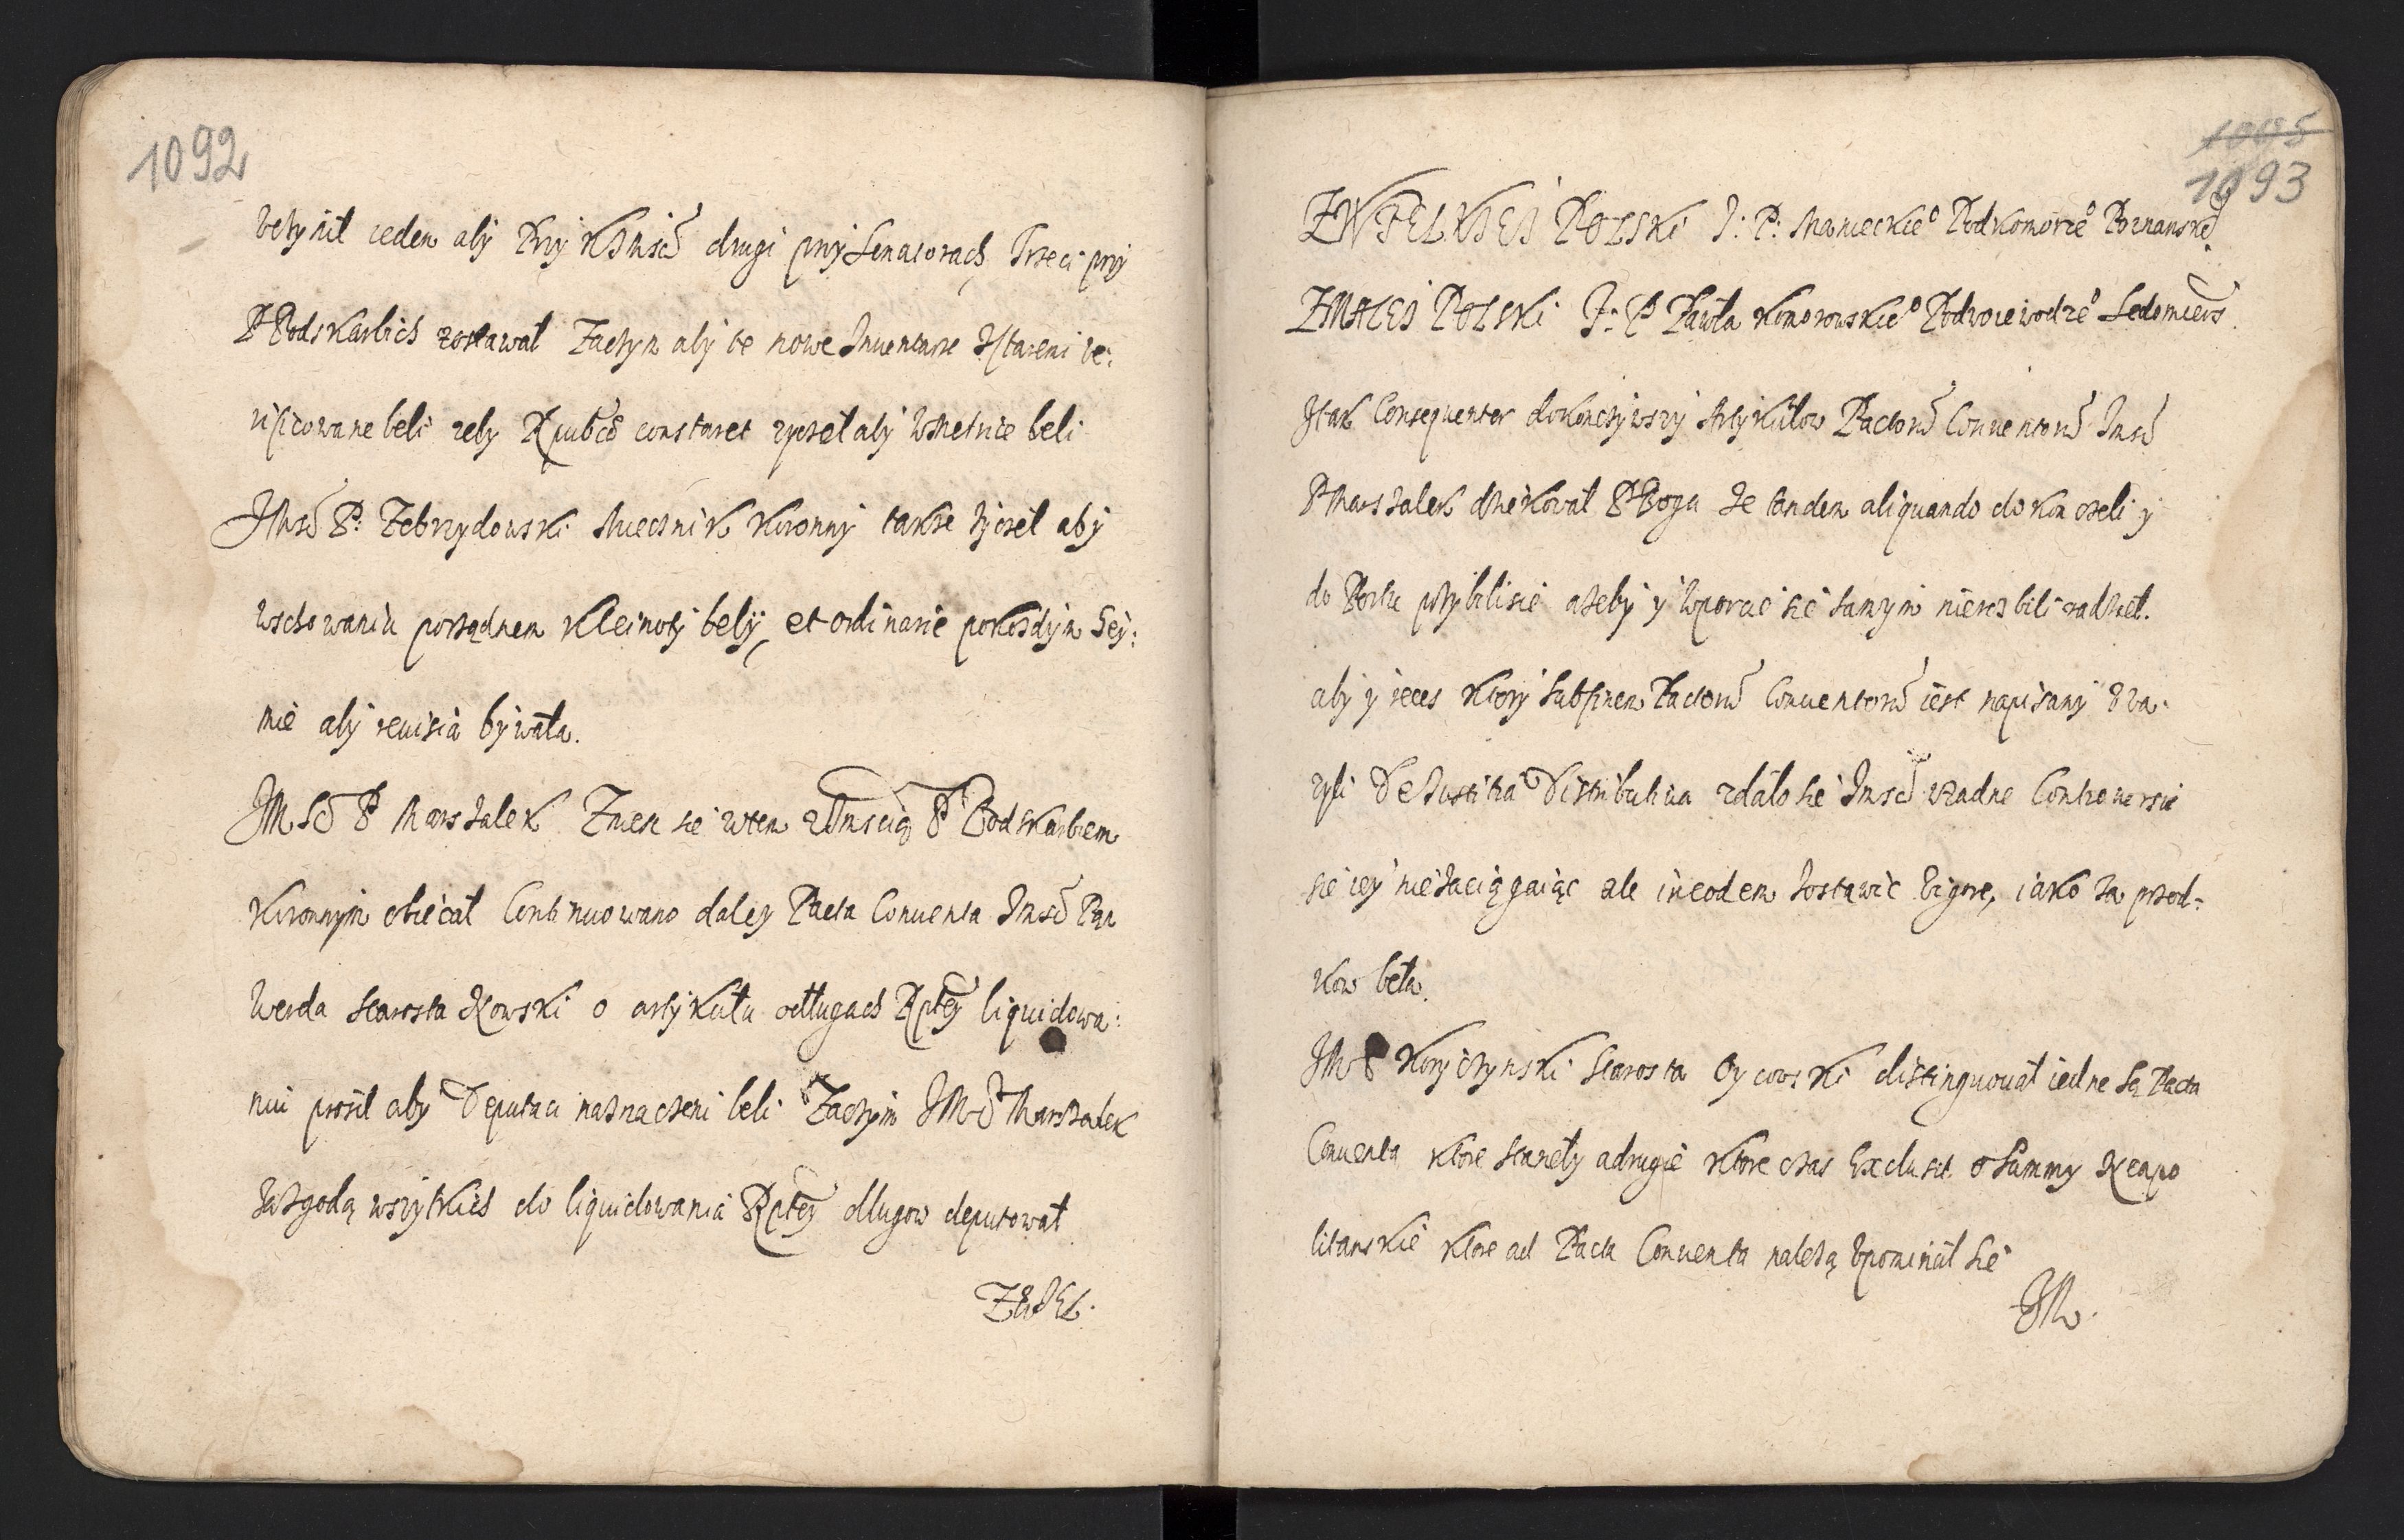 1092
uczynił ieden aby Przy KJMści drugi przy Senatorach, Trzeci przy
P Podskarbich zostawał Zaczym aby te nowe Inuentarze Istaremi ve:
rificowane beli zeby Rpubcæ constaret zyczeł aby wskętnice beli
JMsć P: Zebrzydowski Miecznik Koronny takze zyczeł aby
wschowaniu porządnem Kleinoty bely, et ordinarie pokozdym Sey:
mie aby reuisia bywała.
JMść P Marszałek Zniesc sie wtem zJmscią P Podskarbiem
Koronnym obiecał Continuowano daley Pacta Conuenta Jmsć Pan
Werda Starosta Nowski o artykułu odługach Rptey liquidowa:
niu prosił aby Deputaci naznaczeni beli Zaczym JMP Marszałek
zazgodą wszytkich do liquidowania Rptey dlugow deputował
ZWIEL.
1005
1093
ZWIELKIEI POLSKI J: P: Manieckieo Podkomorzeo Poznanskieo
ZMALEI POLSKI J: P Pawła Komorowskieo Podwoiewodzeo Sedomiers.
Itak Consequenter dokonczywszy Artykułow Pactorum Conuentorum Jmsć
P Marszalek dziekował P Bogu ze tandem aliquando dokonczeli y
do Portu przybilisie azeby y wporcie sie samym nierozbili radzieł.
aby y reces ktory sub finem Pactorum Conuentorum iest napisany Uwa-
zyli De Iustitia Distributiua zdało sie Jmsci wzadne Controuersie
sie iey niezaciągaiąc ale in eodem zostawic vigore, iako za przod-
kow beła.
JMP Koryczynski Starosta Oycowski distinguouał iedne są Pacta
Conuenta ktore stanęły adrugie ktore czas Exclusit o Summy Neapo
litanskie ktore ad Pacta Conuenta nalezą upominał sie
JM.